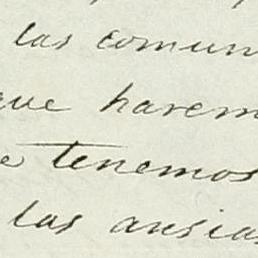 las comun
que harem
e tenemos
las ansias